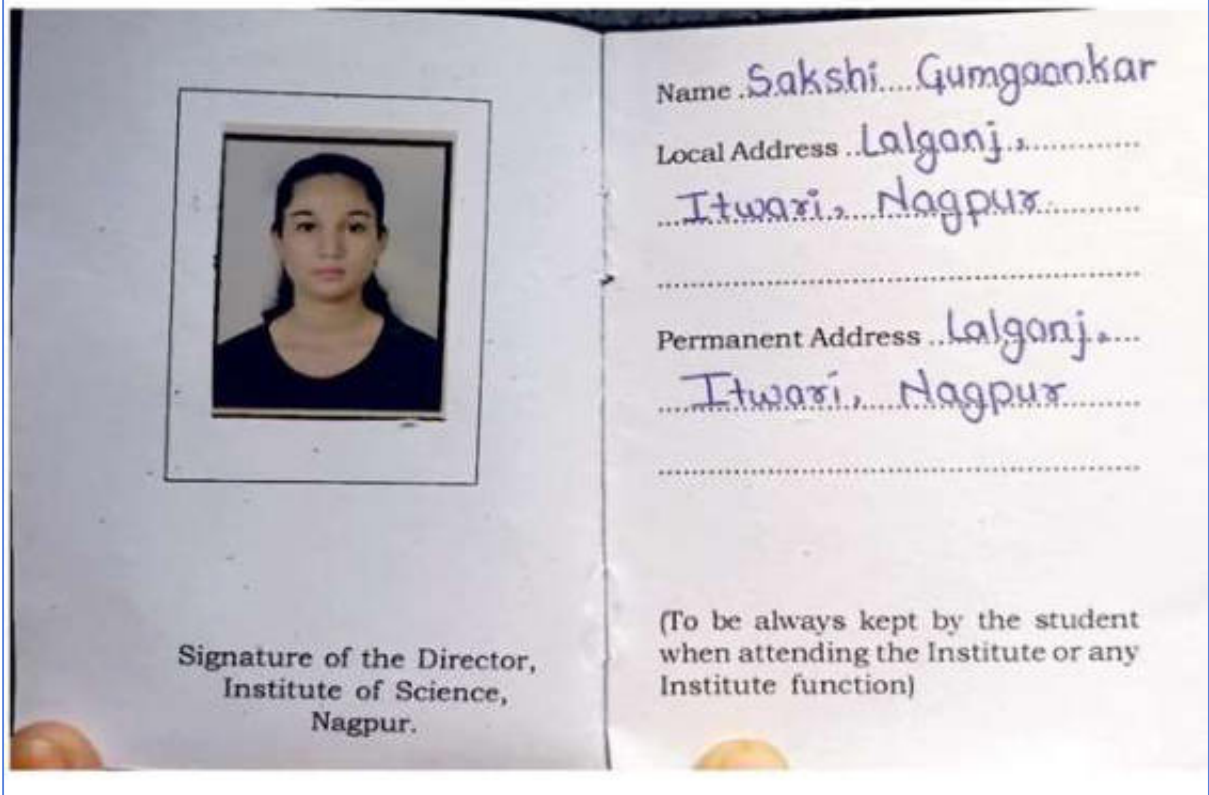 Signature of the Director,
Institute of Science,
Nagpur.
Name .Sakshi....Gumgaonkar
Local Address ..Lalganj.,.............
...Itwari, Nagpur.............
Permanent Address ..Lalganj,....
....Itwari, Nagpur...........
(To be always kept by the student
when attending the Institute or any
Institute function)